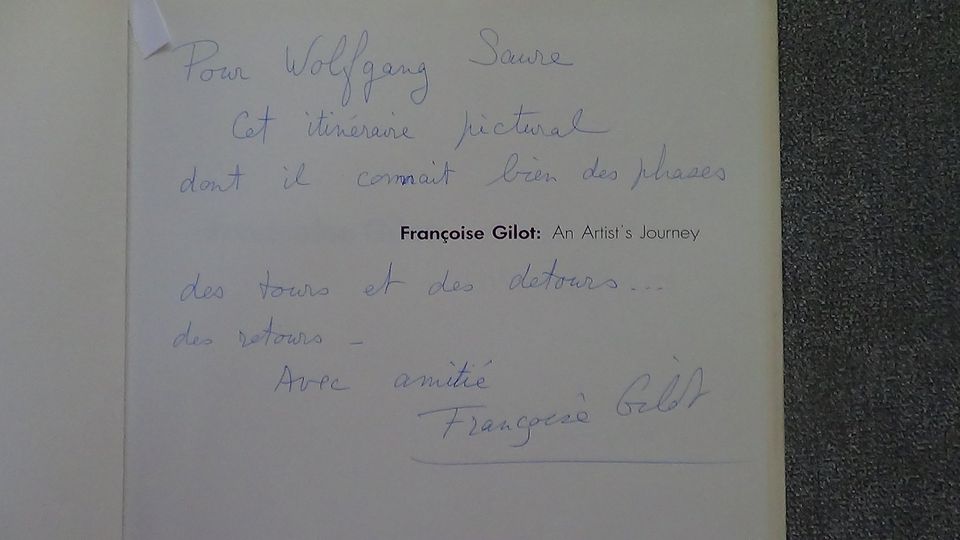 Pour Wolfgang Saure
Cet itinéraire pictural
dont il connait bien des phases
Françoise Gilot: An Artist's Journey
des tours et des detours...
des retours -
Avec amitié
Françoise Gilot